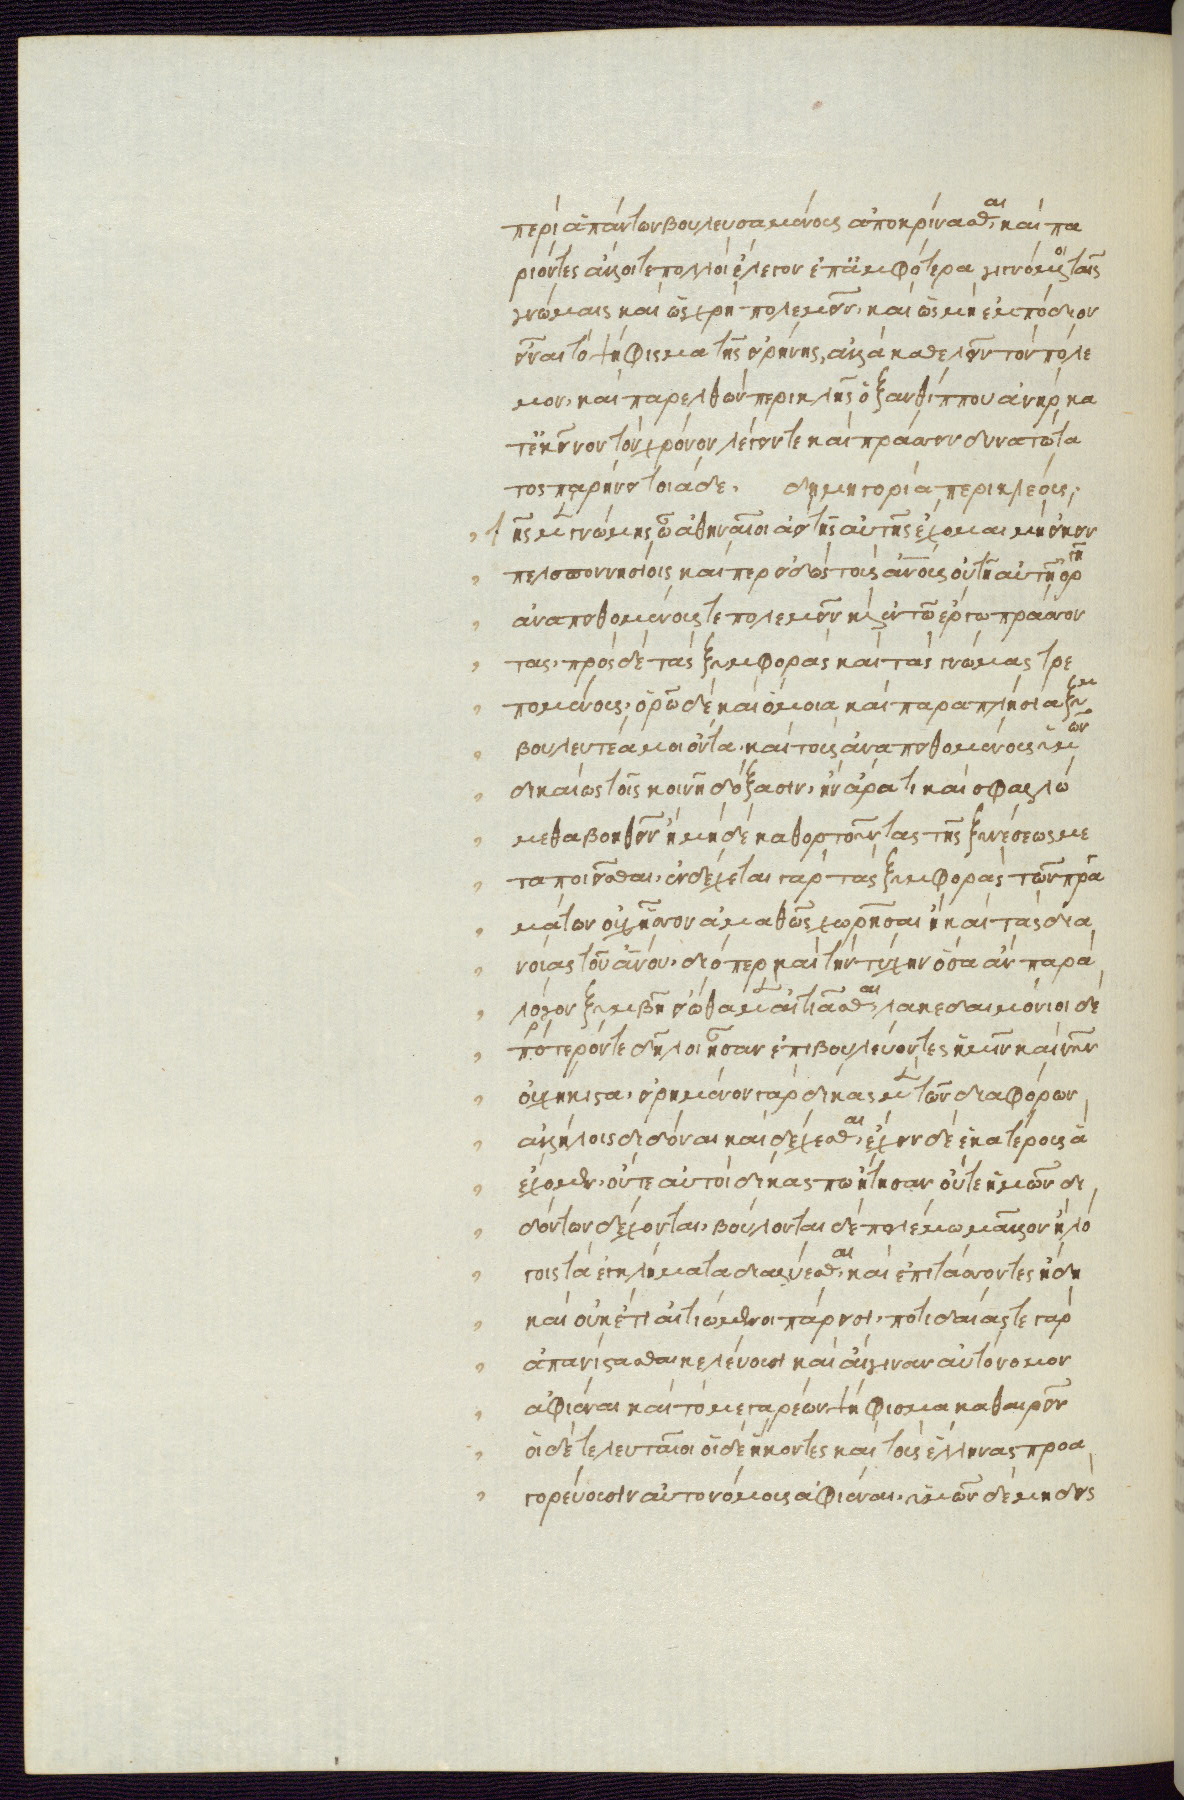 περὶ ἁπάντων βουλευσαμένους ἀποκρίνασθαι· καὶ πα
ριόντες ἄλλοι τε πολλοὶ ἔλεγον ἐπ' ἀμφότερα γιγνόμενοι ταῖς
γνώμαις καὶ ὡς χρὴ πολεμεῖν· καὶ ὡς μὴ ἐμπόδιον
εἶναι τὸ ψήφισμα τῆς εἰρήνης, ἀλλὰ καθελεῖν τὸν πόλε
μον· καὶ παρελθὼν περικλῆς ὁ ξανθίππου ἀνὴρ κα
τ' ἐκεῖνον τὸν χρόνον λέγειν τε καὶ πράσσειν δυνατώτα
τος παρῄνει τοιάδε· δημηγορία περικλέους·
τῆς μὲν γνώμης ὦ ἀθηναῖοι ἀεὶ τῆς αὐτῆς ἔχομαι μὴ εἴκειν
πελοποννησίοις καίπερ εἰδὼς τοὺς ἀνους οὐ τῇ αὐτῇ ὀργῇ
ἀναπειθομένους τε πολεμεῖν καὶ ἐν τῷ ἔργῳ πράσσον
τας· πρὸς δὲ τὰς ξυμφορὰς καὶ τὰς γνώμας τρε
πομένους· ὁρῶ δὲ καὶ ὅμοια καὶ παραπλήσια ξυμ
βουλευτέα μοι ὄντα· καὶ τοὺς ἀναπειθομένους ὑμῶν
δικαιῶ τοῖς κοινῇ δόξασιν· ἢν ἄρα τι καὶ σφαλλώ
μεθα βοηθεῖν ἢ μηδὲ κατορθοῦντας τῆς ξυνέσεως με
ταποιεῖσθαι· ἐνδέχεται γὰρ τὰς ξυμφορὰς τῶν πρα
μάτων οὐχ ἧσσον ἀμαθῶς χωρῆσαι ἢ καὶ τὰς δια
νοίας τοῦ ἀνου· διόπερ καὶ τὴν τύχην ὅσα ἂν παρὰ
λόγον ξυμβῇ εἰώθαμεν αἰτιᾶσθαι· λακεδαιμόνιοι δὲ
πρότερόν τε δῆλοι ἦσαν ἐπιβουλεύοντες ἡμῖν καὶ νῦν
οὐχ ἥκιστα· εἰρημένον γὰρ δίκας μὲν τῶν διαφόρων
ἀλλήλοις διδόναι καὶ δέχεσθαι· ἔχειν δὲ ἑκατέρους ἃ
ἔχομεν· οὔτε αὐτοὶ δίκας πω ᾔτησαν οὔτε ἡμῶν δι
δόντων δέχονται· βούλονται δὲ πολέμῳ μᾶλλον ἢ λό
γοις τὰ ἐγκλήματα διαλύεσθαι· καὶ ἐπιτάσσοντες ἤδη
καὶ οὐκέτι αἰτιώμενοι πάρεισι· ποτιδαίας τε γὰρ
ἀπανίστασθαι κελεύουσι καὶ αἴγιναν αὐτόνομον
ἀφιέναι καὶ τὸ μεγαρέων ψήφισμα καθαιρεῖν
οἱ δὲ τελευταῖοι οἵδε ἥκοντες καὶ τοὺς ἕλληνας προα
γορεύουσιν αὐτονόμους ἀφιέναι· ὑμῶν δὲ μηδεὶς